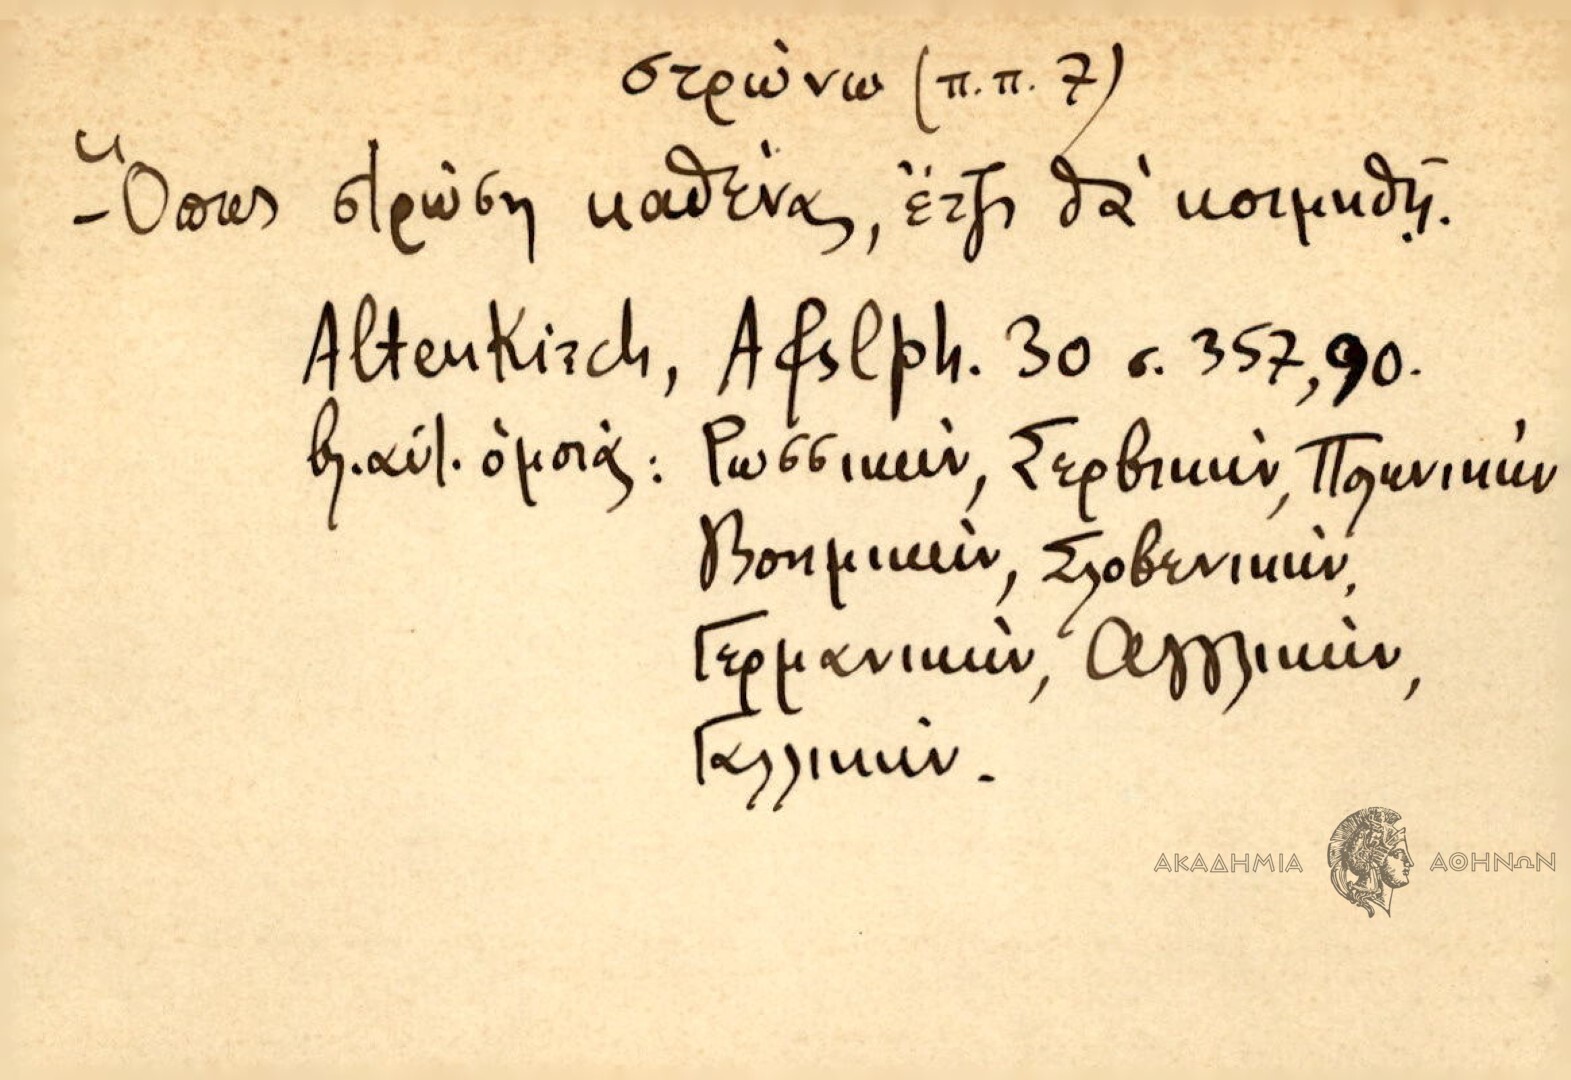 στρώνω (π.π. 7)
- Ὅπως στρώση καθένας, ἔτζι θὰ κοιμηθῇ.
Altenkirch, Afslph. 30 σ. 357,90.
βλ. αὐτ. ὁμοιὰ: Ρωσσικὴν, Σερβικὴν, Πολωνικὴν
Βοημικὴν, Σλοβενικὴν,
Γερμανικὴν, Ἀγγλικὴν,
Γαλλικὴν.
ΑΚΑΔΗΜΙΑ ΑΘΗΝΩΝ